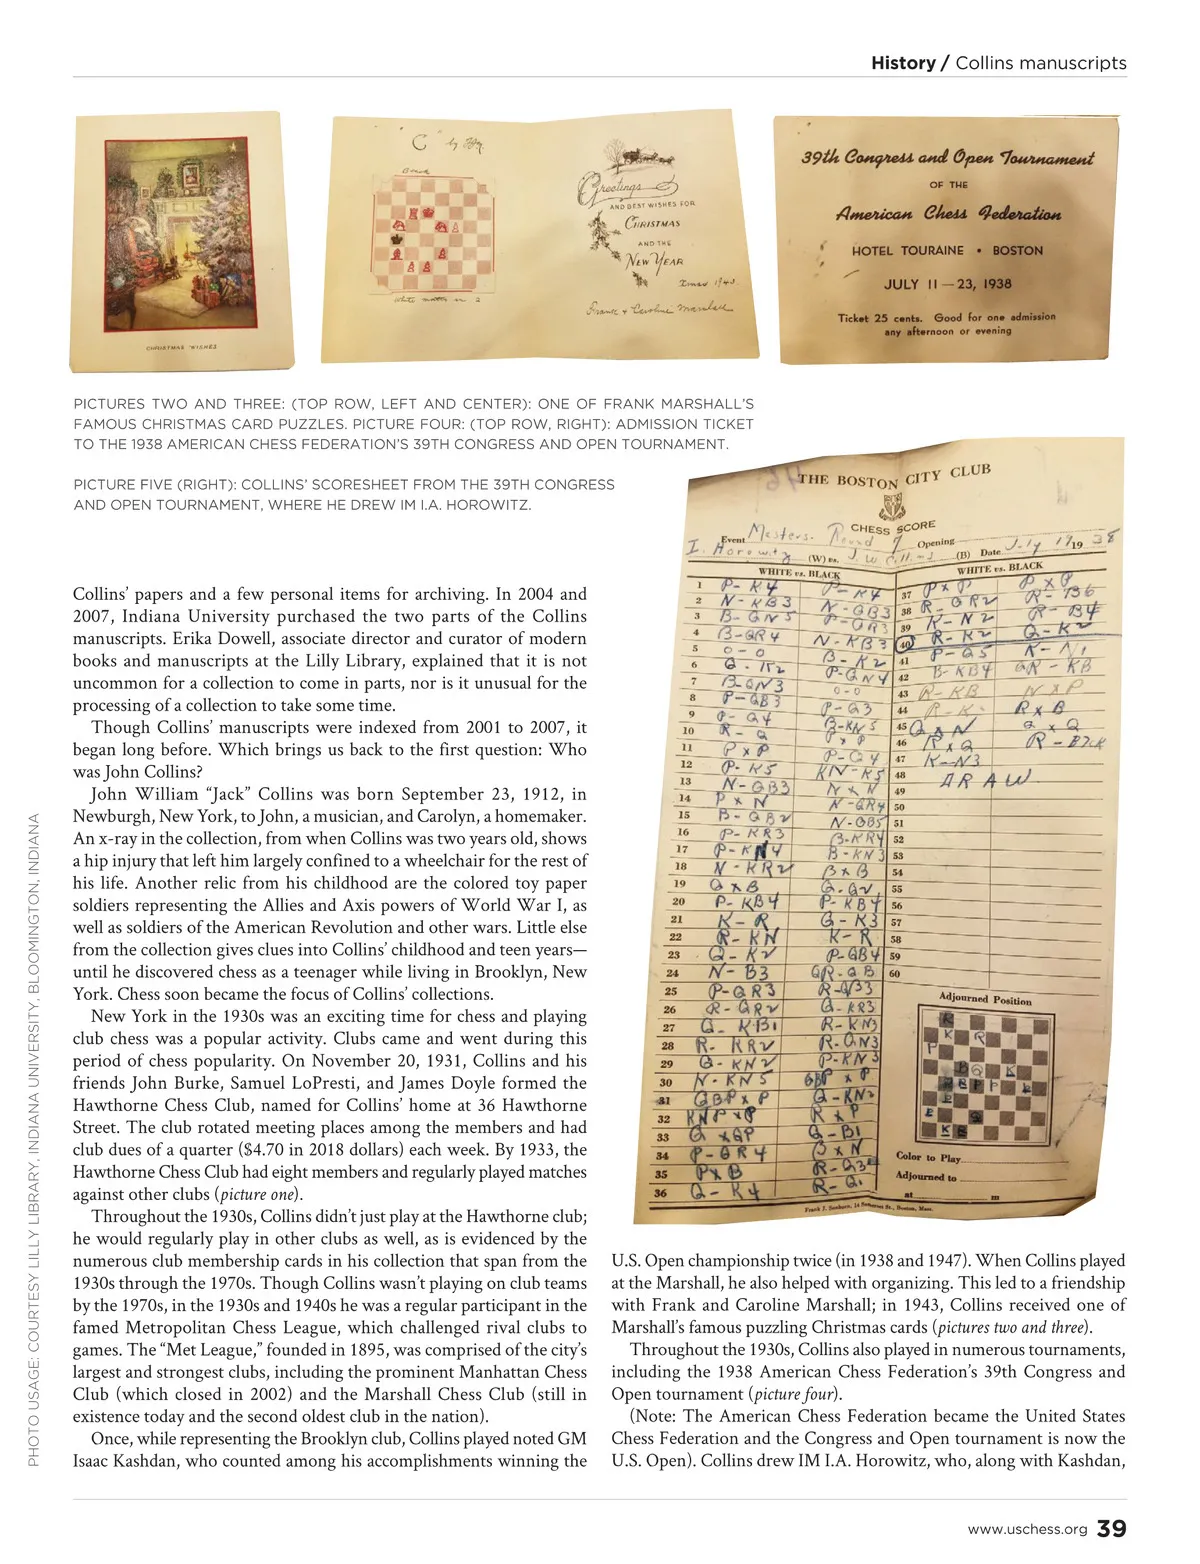 History / Collins manuscripts
CHRISTMAS WISHES
"C"
Black
White mates in 2
Greetings
AND BEST WISHES FOR
CHRISTMAS
AND THE
NEW YEAR
Xmas 1943
Frank + Caroline Marshall
39th Congress and Open Tournament
OF THE
American Chess Federation
HOTEL TOURAINE • BOSTON
JULY 11 — 23, 1938
Ticket 25 cents. Good for one admission
any afternoon or evening
PICTURES TWO AND THREE: (TOP ROW, LEFT AND CENTER): ONE OF FRANK MARSHALL'S
FAMOUS CHRISTMAS CARD PUZZLES. PICTURE FOUR: (TOP ROW, RIGHT): ADMISSION TICKET
TO THE 1938 AMERICAN CHESS FEDERATION'S 39TH CONGRESS AND OPEN TOURNAMENT.
PICTURE FIVE (RIGHT): COLLINS' SCORESHEET FROM THE 39TH CONGRESS
AND OPEN TOURNAMENT, WHERE HE DREW IM I.A. HOROWITZ.
Collins' papers and a few personal items for archiving. In 2004 and
2007, Indiana University purchased the two parts of the Collins
manuscripts. Erika Dowell, associate director and curator of modern
books and manuscripts at the Lilly Library, explained that it is not
uncommon for a collection to come in parts, nor is it unusual for the
processing of a collection to take some time.
Though Collins' manuscripts were indexed from 2001 to 2007, it
began long before. Which brings us back to the first question: Who
was John Collins?
John William "Jack" Collins was born September 23, 1912, in
Newburgh, New York, to John, a musician, and Carolyn, a homemaker.
An x-ray in the collection, from when Collins was two years old, shows
a hip injury that left him largely confined to a wheelchair for the rest of
his life. Another relic from his childhood are the colored toy paper
soldiers representing the Allies and Axis powers of World War I, as
well as soldiers of the American Revolution and other wars. Little else
from the collection gives clues into Collins' childhood and teen years—
until he discovered chess as a teenager while living in Brooklyn, New
York. Chess soon became the focus of Collins' collections.
New York in the 1930s was an exciting time for chess and playing
club chess was a popular activity. Clubs came and went during this
period of chess popularity. On November 20, 1931, Collins and his
friends John Burke, Samuel LoPresti, and James Doyle formed the
Hawthorne Chess Club, named for Collins' home at 36 Hawthorne
Street. The club rotated meeting places among the members and had
club dues of a quarter ($4.70 in 2018 dollars) each week. By 1933, the
Hawthorne Chess Club had eight members and regularly played matches
against other clubs (picture one).
Throughout the 1930s, Collins didn't just play at the Hawthorne club;
he would regularly play in other clubs as well, as is evidenced by the
numerous club membership cards in his collection that span from the
1930s through the 1970s. Though Collins wasn't playing on club teams
by the 1970s, in the 1930s and 1940s he was a regular participant in the
famed Metropolitan Chess League, which challenged rival clubs to
games. The "Met League," founded in 1895, was comprised of the city's
largest and strongest clubs, including the prominent Manhattan Chess
Club (which closed in 2002) and the Marshall Chess Club (still in
existence today and the second oldest club in the nation).
Once, while representing the Brooklyn club, Collins played noted GM
Isaac Kashdan, who counted among his accomplishments winning the
THE BOSTON CITY CLUB
CHESS SCORE
Event Masters. Round 7 Opening
I. Horowitz (W) vs. J. W. Collins (B) Date July 17 1938
WHITE vs. BLACK
1 P-K4 P-K4
2 N-KB3 N-QB3
3 B-QN5 P-QR3
4 B-QR4 N-KB3
5 0-0 B-K2
6 Q-K2 P-QN4
7 B-QN3 0-0
8 P-QB3 P-Q3
9 P-Q4 B-KN5
10 R-Q P x P
11 P x P P-Q4
12 P-K5 KN-K5
13 N-QB3 N x N
14 P x N N-QR4
15 B-QB2 N-QB5
16 P-KR3 B-KR4
17 P-KN4 B-KN3
18 N-KR2 B x B
19 Q x B Q-Q2
20 P-KB4 P-KB4
21 K-R Q-K3
22 R-KN K-R
23 Q-K2 P-QB4
24 N-B3 QR-QB
25 P-QR3
26 R-QR2 Q-KR3
27 Q-KB1 R-KN3
28 R-KR2 R-QN3
29 Q-KN2 P-KN3
30 N-KN5 QBP x P
31 QBP x P Q-KN2
32 KNP x P R x P
33 Q x QP Q-B1
34 P-QR4 B x N
35 P x B R-Q3
36 Q-K4 R-Q1
WHITE vs. BLACK
37 P x P P x P
38 R-QR2 R-B6
39 K-N2 R-B4
40 R-K2 Q-K2
41 P-Q5 K-N1
42 B-KB4 QR-KB
43 R-KB N x P
44 R-K R x B
45 Q x N Q x Q
46 R x Q
47 K-N3
48 DRAW
49
50
51
52
53
54
55
56
57
58
59
60
Adjourned Position
Color to Play
Adjourned to
at m
Frank J. Sanborn, 14 Somerset St., Boston, Mass.
U.S. Open championship twice (in 1938 and 1947). When Collins played
at the Marshall, he also helped with organizing. This led to a friendship
with Frank and Caroline Marshall; in 1943, Collins received one of
Marshall's famous puzzling Christmas cards (pictures two and three).
Throughout the 1930s, Collins also played in numerous tournaments,
including the 1938 American Chess Federation's 39th Congress and
Open tournament (picture four).
(Note: The American Chess Federation became the United States
Chess Federation and the Congress and Open tournament is now the
U.S. Open). Collins drew IM I.A. Horowitz, who, along with Kashdan,
PHOTO USAGE: COURTESY LILLY LIBRARY, INDIANA UNIVERSITY, BLOOMINGTON, INDIANA
www.uschess.org 39